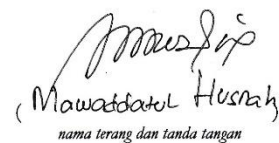 (Mawaddatul Husnah)
nama terang dan tanda tangan